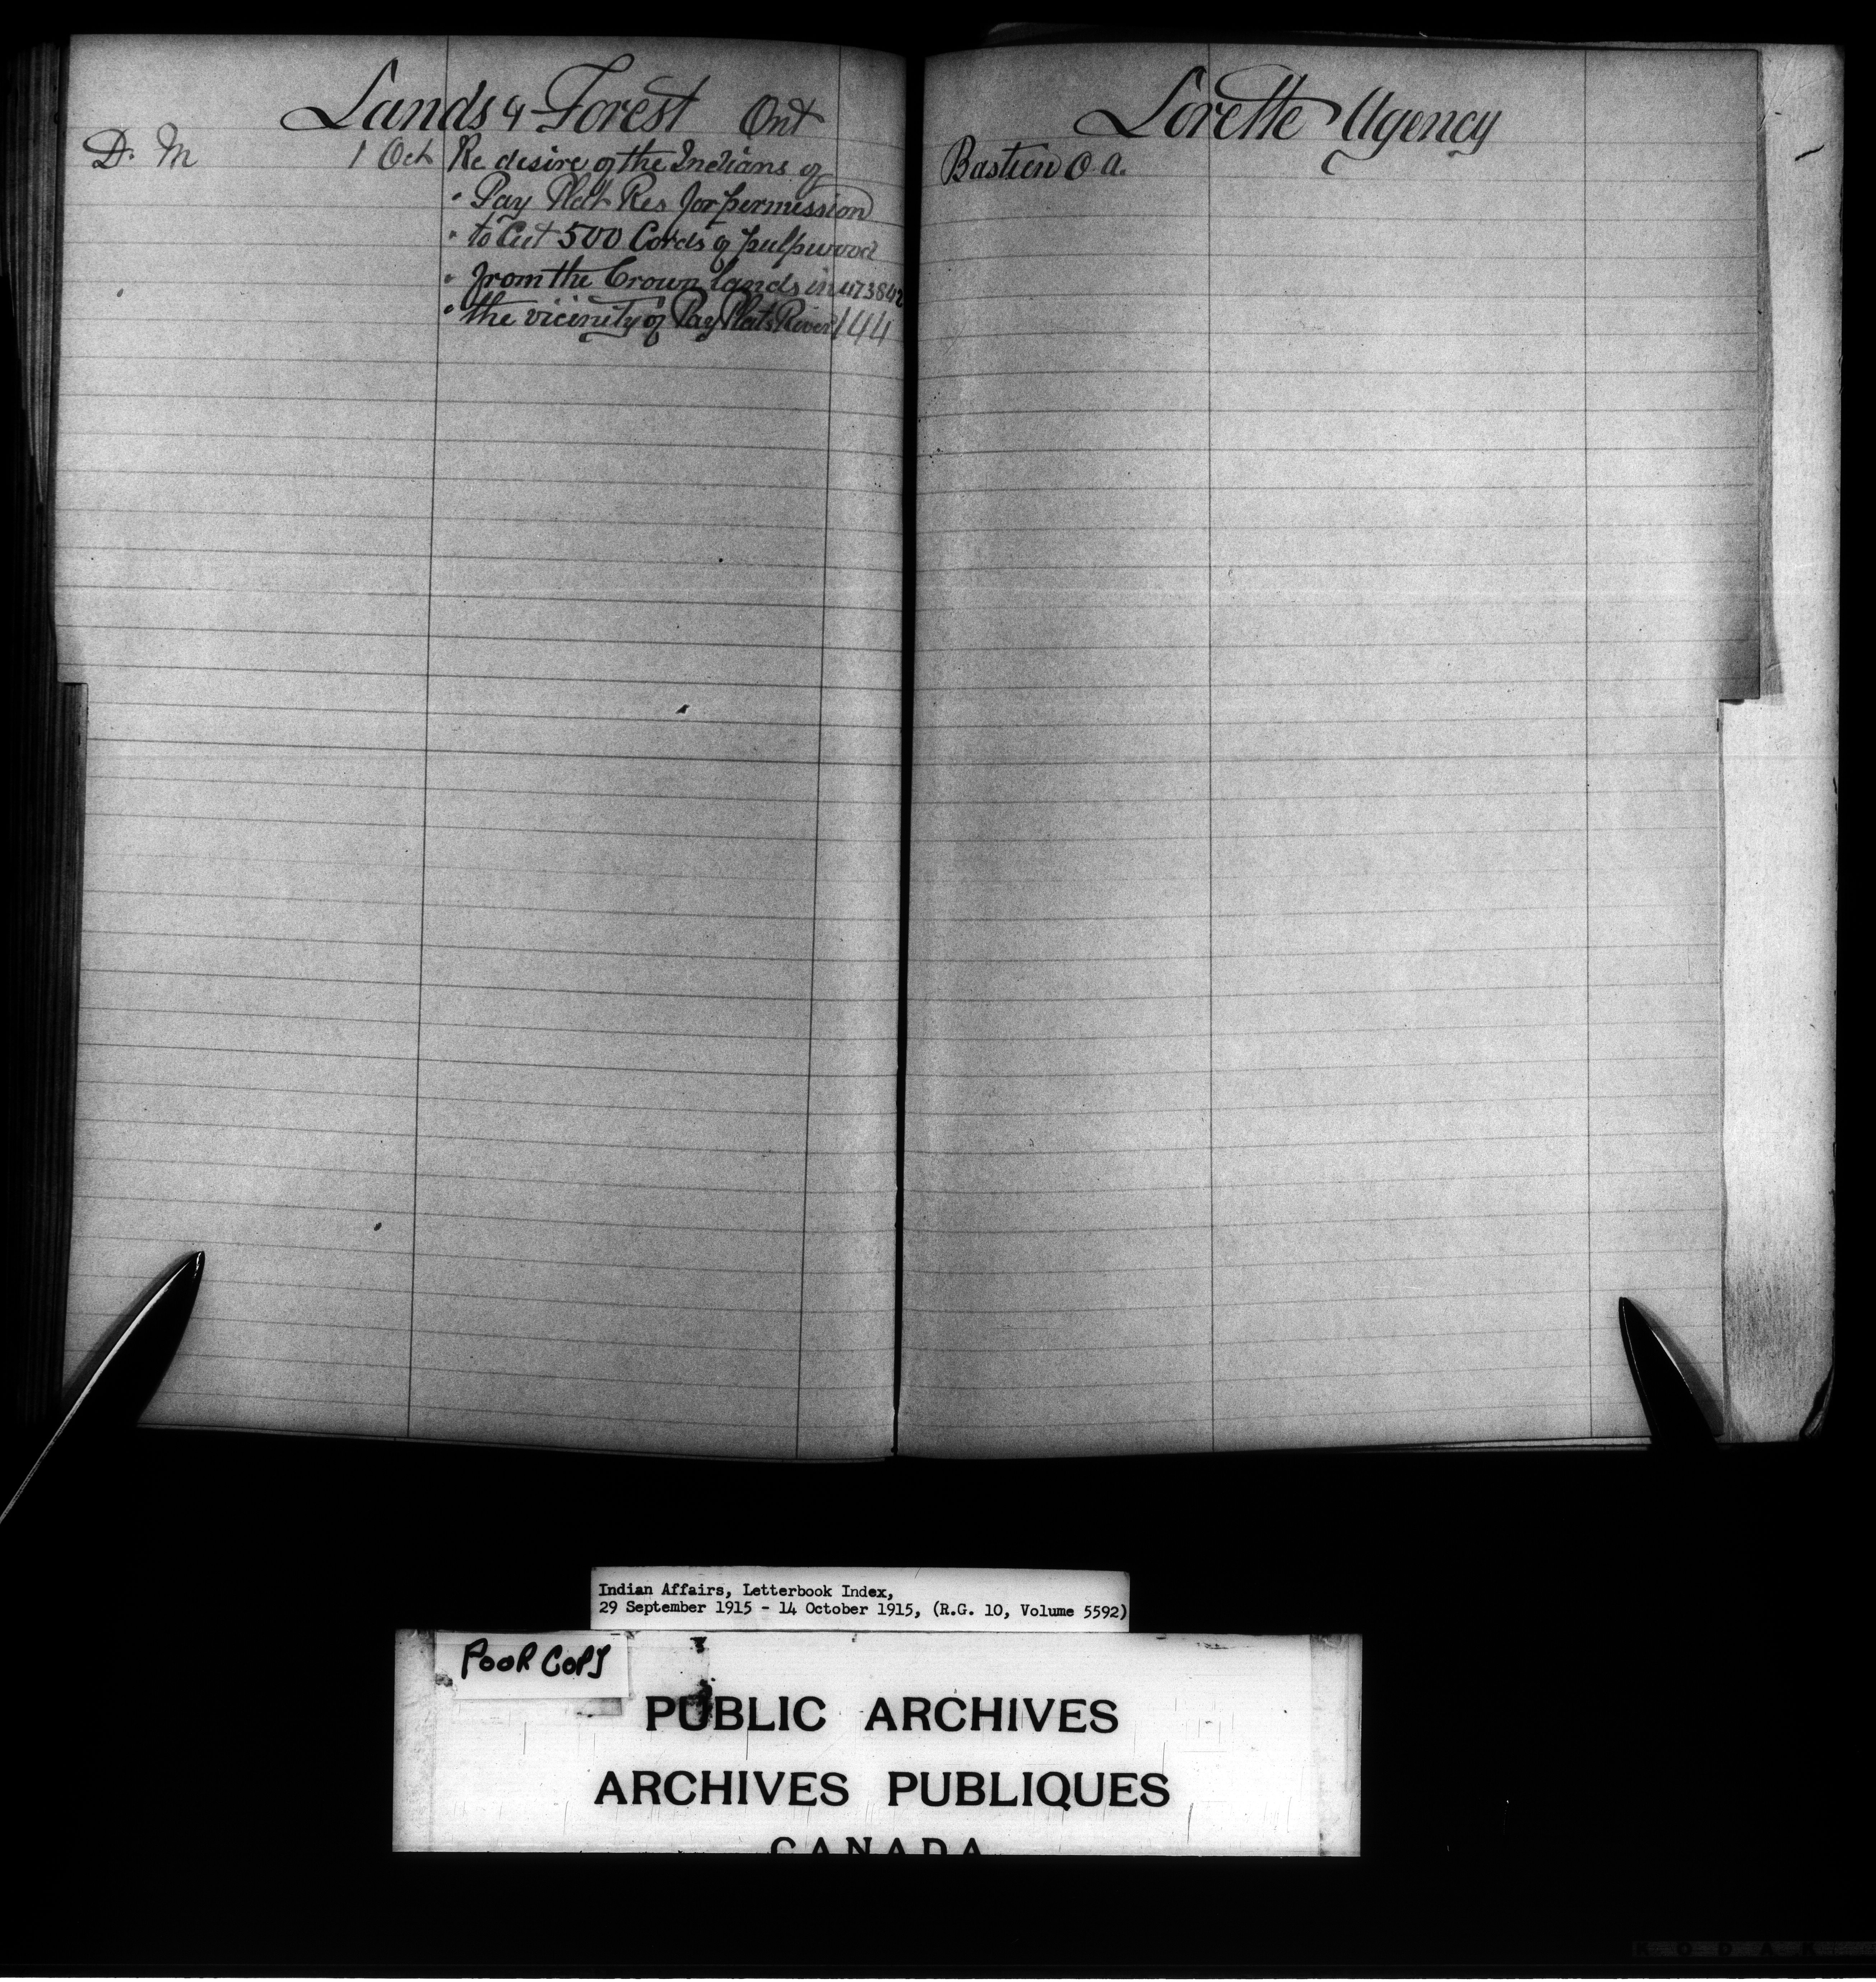 Lands & Forest Ont
D. M 1 Oct Re desire of the Indians of
" Pay Plat Res for permission
" to Cut 500 Cords of pulpwood
" from the Crown lands in 473842
" the vicinity of Pay Plats River 144
Lorette Agency
Bastien O. A.
Indian Affairs, Letterbook Index,
29 September 1915 - 14 October 1915, (R.G. 10, Volume 5592)
POOR COPY
PUBLIC ARCHIVES
ARCHIVES PUBLIQUES
CANADA
KODAK